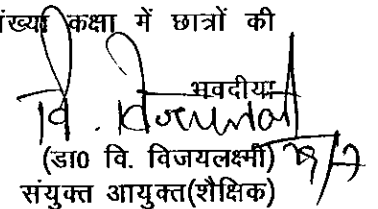 संख्या कक्षा में छात्रों की
भवदीया
वि.
(डा0 वि. विजयलक्ष्मी)
संयुक्त आयुक्त(शैक्षिक)